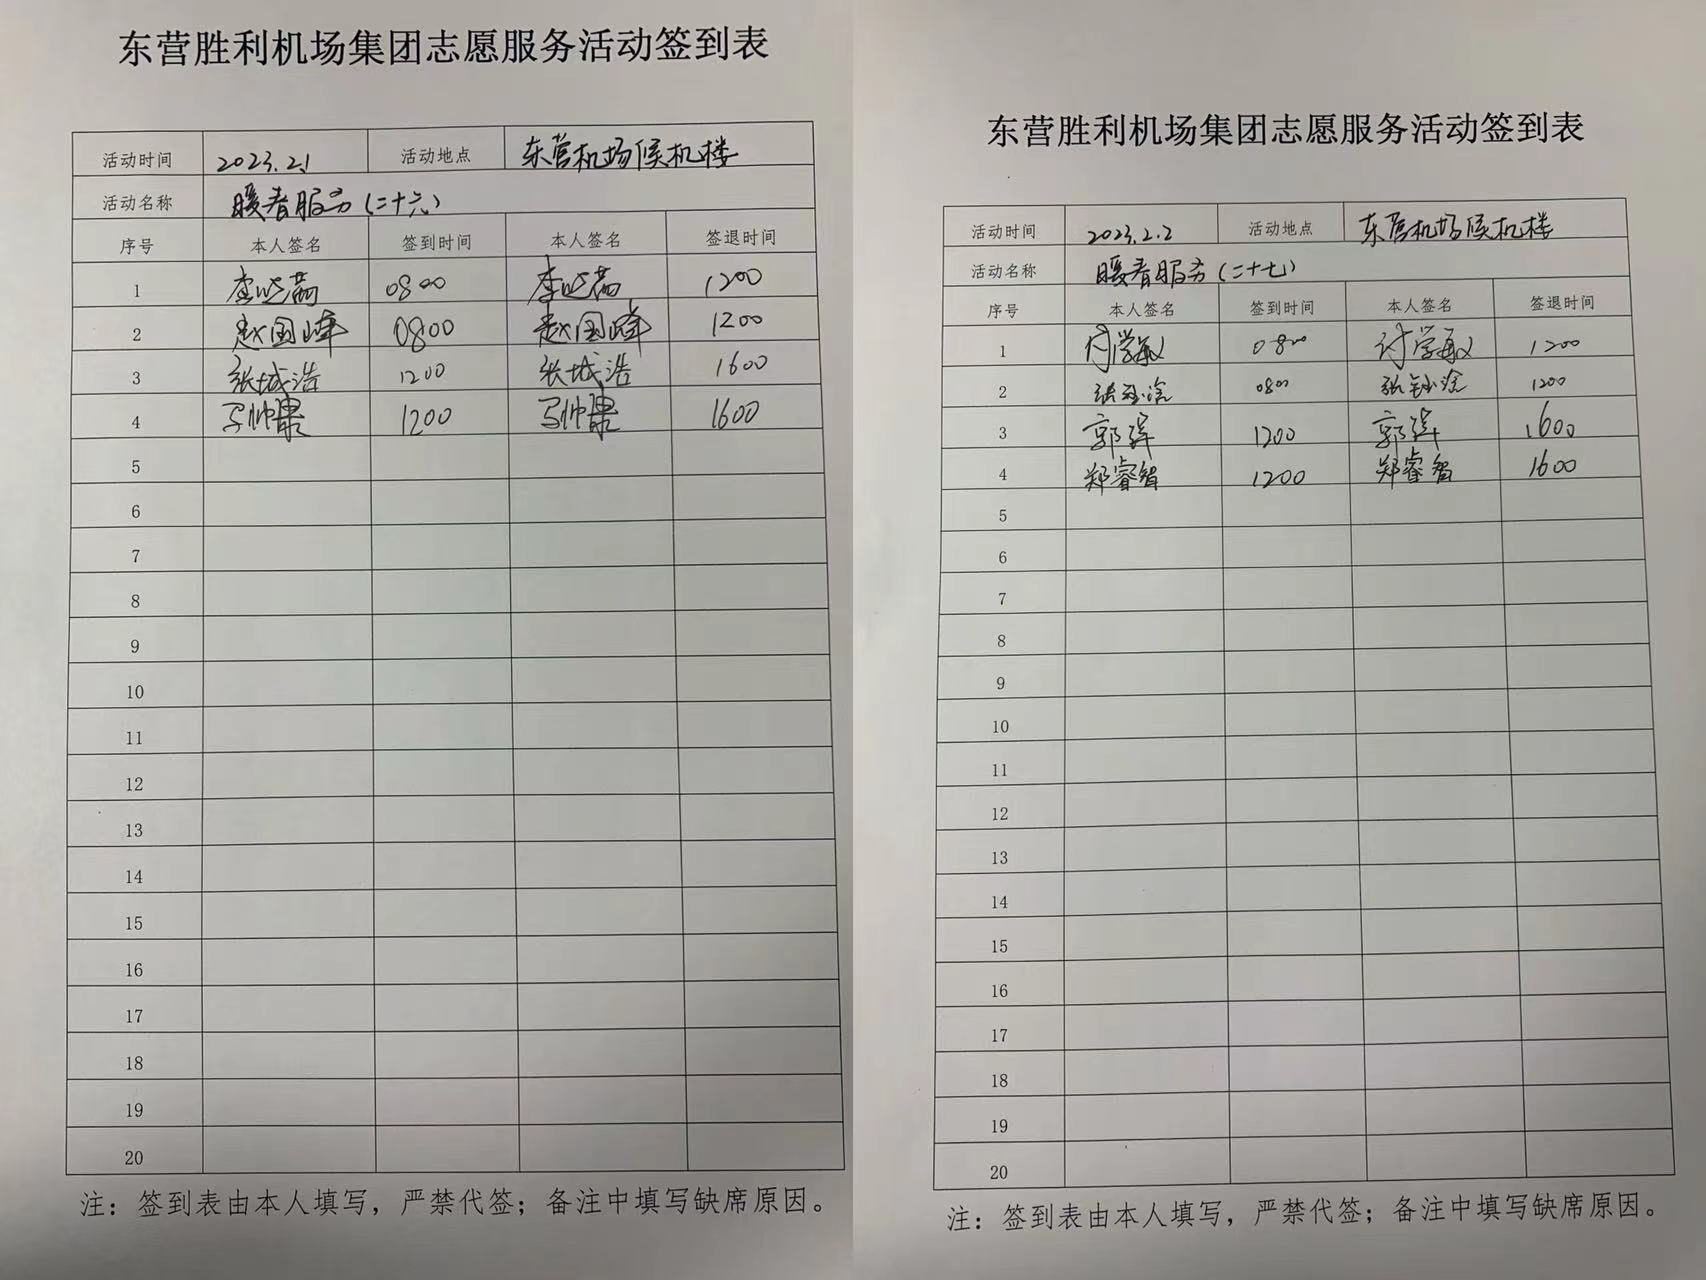 东营胜利机场集团志愿服务活动签到表
活动时间 2023.2.1 活动地点 东营机场候机楼
活动名称 暖春服务(二十六)
序号 本人签名 签到时间 本人签名 签退时间
1 0800 1200
2 赵国峰 0800 赵国峰 1200
3 张城浩 1200 张城浩 1600
4 1200 1600
5
6
7
8
9
10
11
12
13
14
15
16
17
18
19
20
注：签到表由本人填写，严禁代签；备注中填写缺席原因。
东营胜利机场集团志愿服务活动签到表
活动时间 2023.2.2 活动地点 东营机场候机楼
活动名称 暖春服务(二十七)
序号 本人签名 签到时间 本人签名 签退时间
1 付学敏 0800 付学敏 1200
2 0800 1200
3 1200 1600
4 郑睿智 1200 郑睿智 1600
5
6
7
8
9
10
11
12
13
14
15
16
17
18
19
20
注：签到表由本人填写，严禁代签；备注中填写缺席原因。